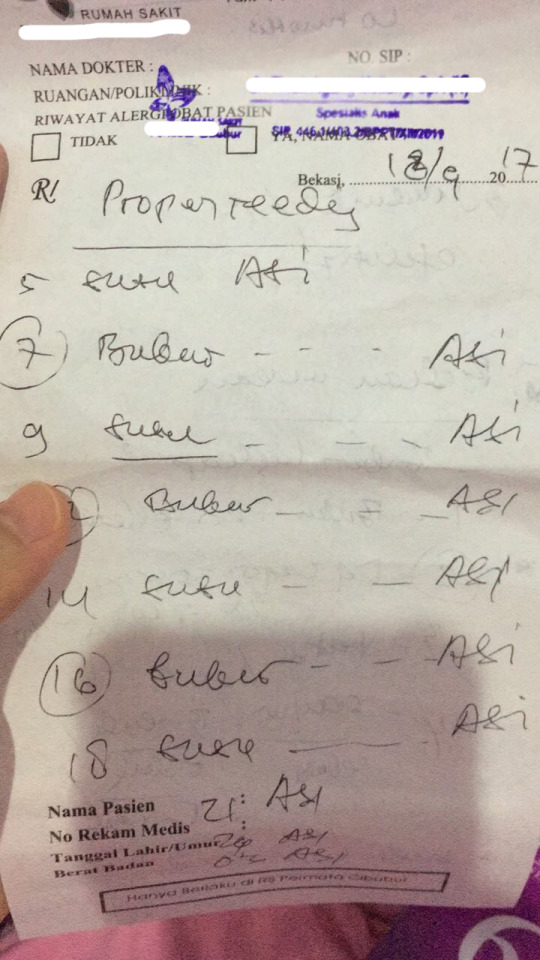 RUMAH SAKIT
NAMA DOKTER :
NO. SIP :
RUANGAN/POLIKLINIK :
Spesialis Anak
RIWAYAT ALERGI OBAT PASIEN
TIDAK
YA, NAMA OBAT
R/
Bekasi, 18/9 2017
Proper feeding
5 susu ASI
7 Bubur - - - ASI
9 susu - - - ASI
Bubur - - ASI
14 susu - - ASI
16 Bubur - - ASI
18 susu ASI
Nama Pasien : 21 ASI
No Rekam Medis :
Tanggal Lahir/Umur 24 ASI
Berat Badan ASI
Hanya Berlaku di RS Permata Cibubur